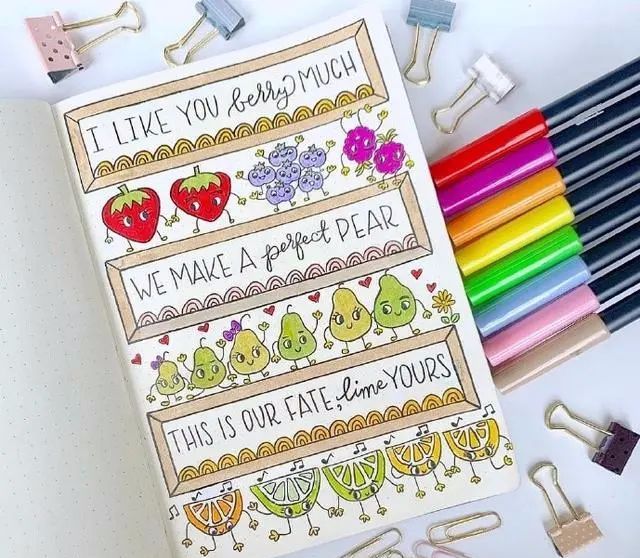 I LIKE YOU berry MUCH
WE MAKE A perfect PEAR
THIS IS OUR FATE, lime YOURS